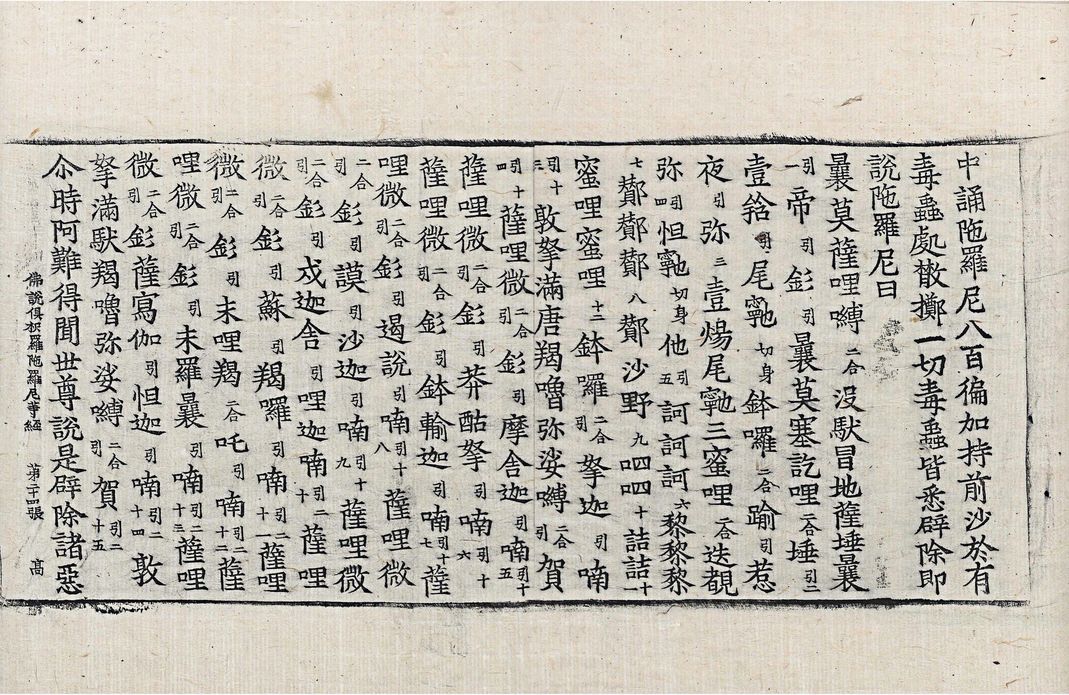 中誦陁羅尼八百徧加持前沙於有
毒蟲處撒擲一切毒蟲皆悉辟除即
說陁羅尼曰
曩莫薩哩嚩二合没馱冒地薩埵曩
引一帝引彭引曩莫塞訖哩二合埵引二
壹𥿄引尾𩕳切身鉢囉二合踰引惹
夜引弥三壹煬尾𩕳三蜜哩二合迭覩
弥引四怛𩕳切身他引五訶訶訶六黎黎黎
七鄼鄼鄼八鄼沙野九呬呬十詰詰十一
蜜哩蜜哩十二鉢囉二合引拏迦引喃
引十三敦拏滿唐羯嚕弥娑嚩二合引賀
引十四薩哩微二合引彭引摩舍迦引喃引十五
薩哩微二合引彭引莽酤拏引喃引十六
薩哩微二合引彭引鉢輸迦引喃引十七薩
哩微二合引彭引遏說引喃引十八薩哩微
二合引彭引謨引沙迦引喃引十九薩哩微
二合引彭引戍迦舍引哩迦喃引二十薩哩
微二合引彭引蘇引羯囉引喃引二十一薩哩
微二合引彭引末哩羯二合吒引喃引二十二薩
哩微二合引彭引末羅曩引喃引二十三薩哩
微二合引彭薩寫伽引怛迦引喃引二十四敦
拏滿馱羯嚕弥娑嚩二合引賀引二十五
尒時阿難得聞世尊說是辟除諸惡
佛說俱枳羅陁羅尼等經 第二十四張 高